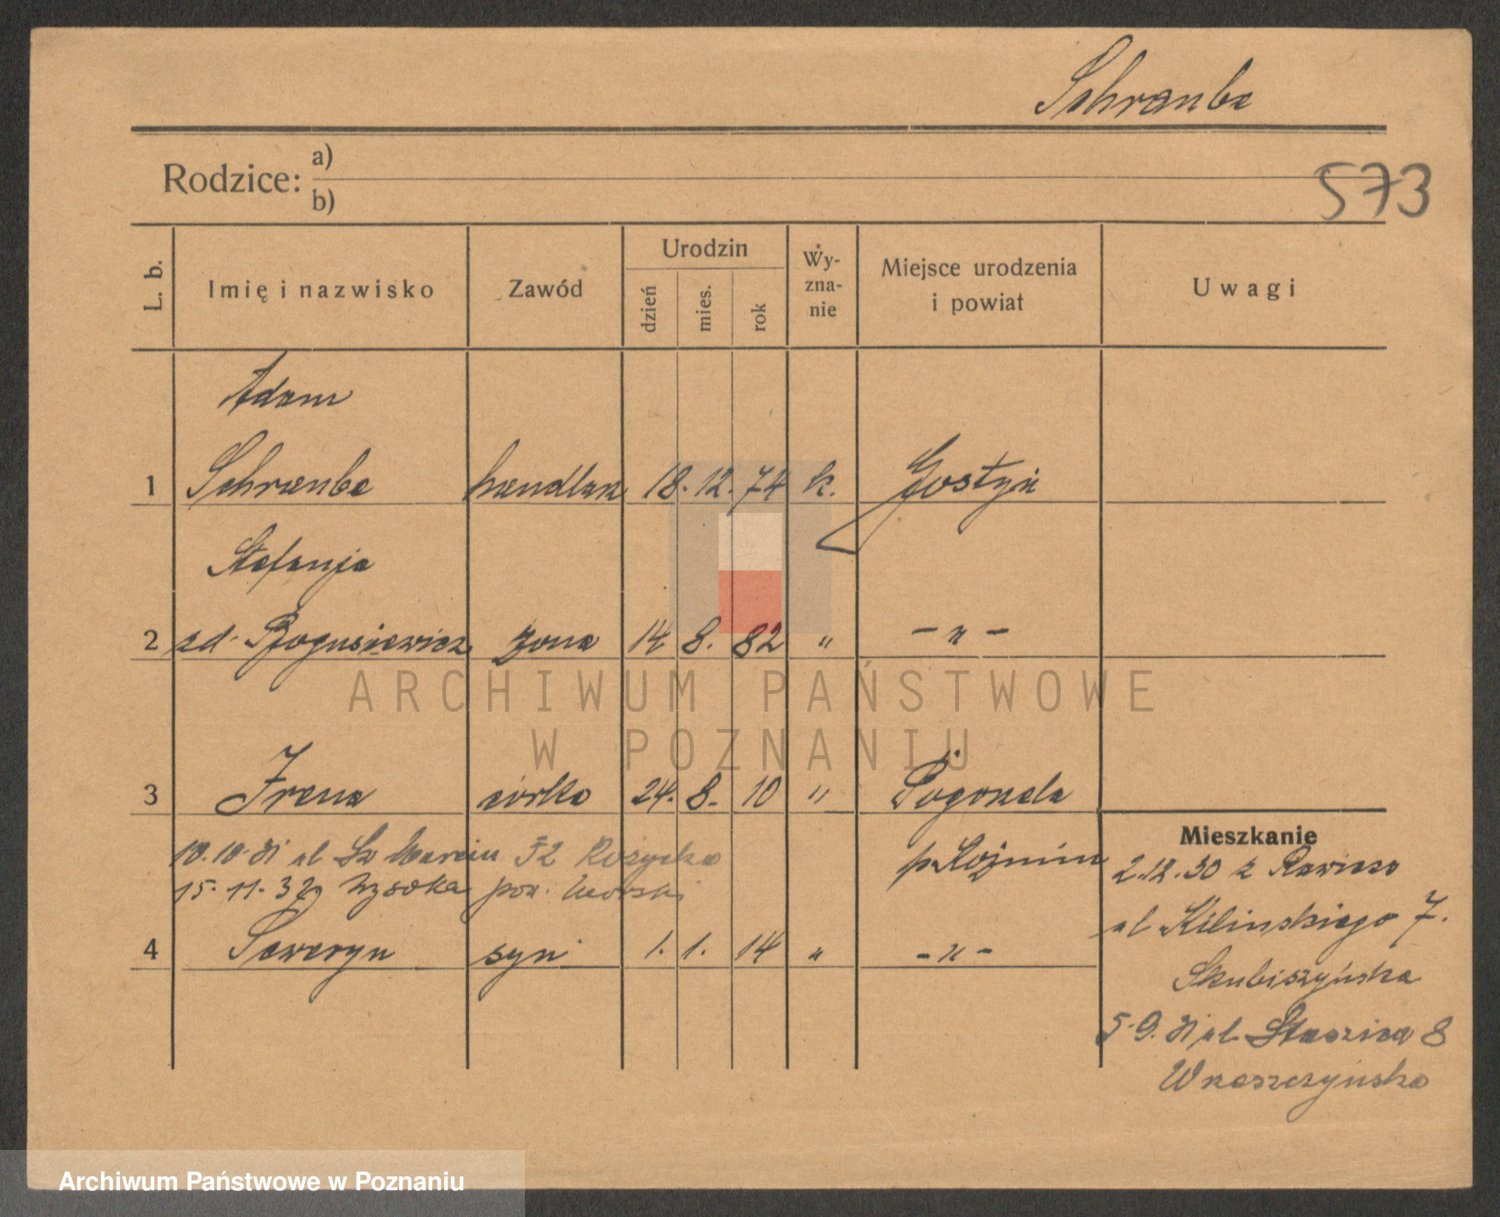 Schraube
Rodzice:
a)
b)
573
L. b.
Imię i nazwisko
Zawód
Urodzin
dzień
mies.
rok
Wy-
zna-
nie
Miejsce urodzenia
i powiat
Uwagi
Adam
1 Schraube handlarz 18. 12. 74 k. Gostyń
Stefanja
2 zd. Bogusiewicz żona 14 8. 82 " - " -
3 Irena córka 24. 8. 10 " Pogorzela
p. Koźmin
10.10.31 ul Św Marcin 52 Rozycka
15.11.32 Wysoka pow.
4 Seweryn syn 1. 1. 14 " - " -
Mieszkanie
2.12.30 z Rawicza
ul Kilinskiego 7.
Skubiszyńska
5.9.31 ul. Staszica 8
Wraszczyńska
ARCHIWUM PAŃSTWOWE
W POZNANIU
Archiwum Państwowe w Poznaniu